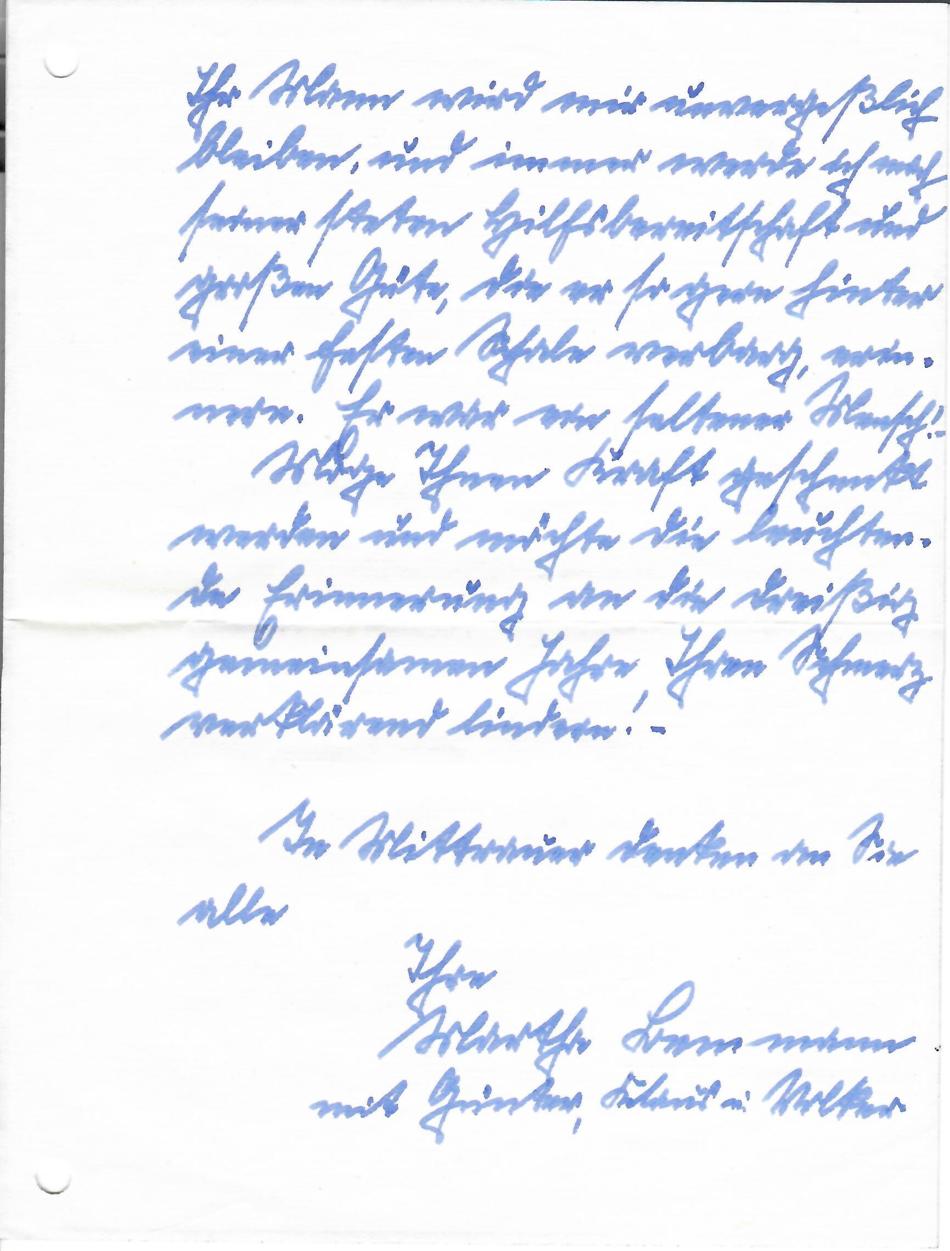 Ihr Mann wird mir unvergeßlich
bleiben, und immer werde ich mich
seiner steten Hilfsbereitschaft und
großen Güte, die er so gern hinter
einer festen Schale verbarg, erin-
nern. Er war ein seltener Mensch!-
Möge Ihnen Kraft geschenkt
werden und möchte die leuchten-
de Erinnerung an die dreißig
gemeinsamen Jahre, Ihren Schmerz
verklärend lindern! -
In Mittrauer denken an Sie
alle
Ihre
Marthe
mit Günter, Klaus u. Volker